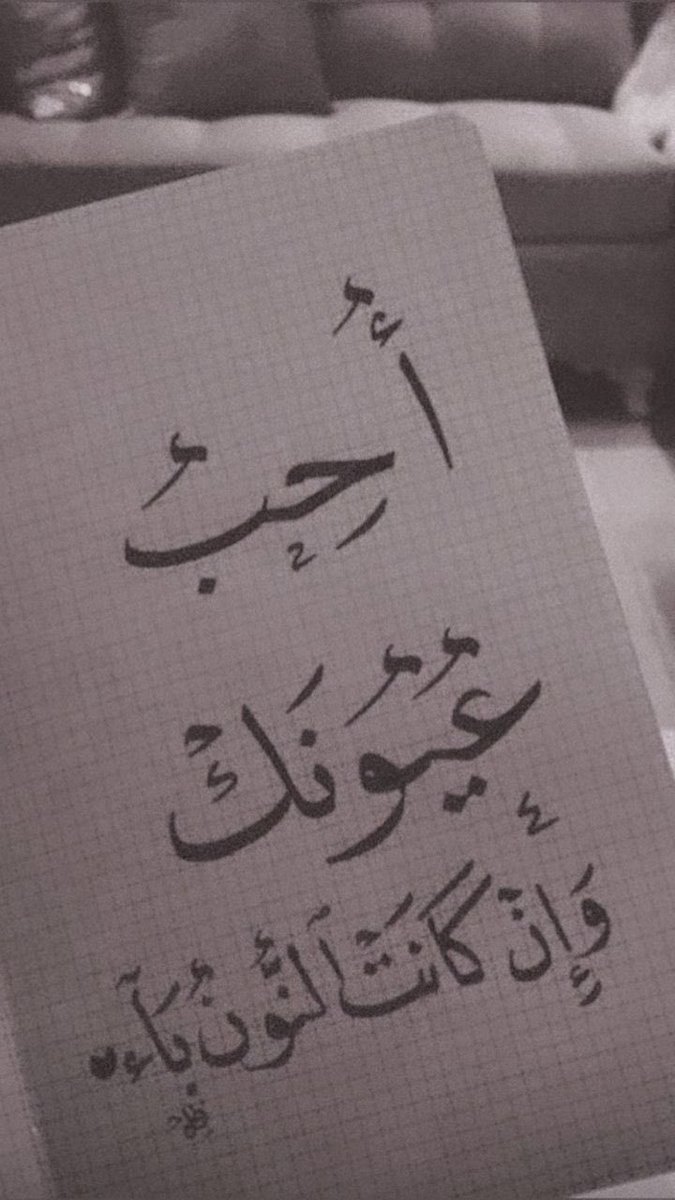 أُحِبُ
عُيُونَكْ
وَإِنْ كَانَتْ اَلنُّونُ بَآء